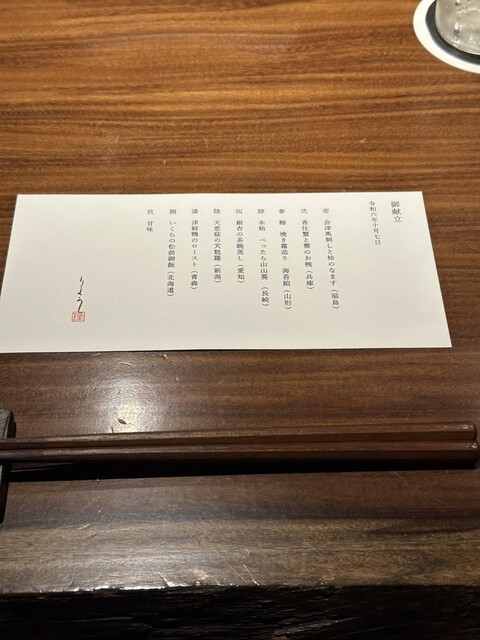 御献立
令和六年十月七日
壱 会津馬刺しと柿のなます（福島）
弐 香住蟹と蕪のお椀（兵庫）
参 鰆 焼き霜造り 海苔餡（山形）
肆 本鮪 べったら山山葵（長崎）
伍 銀杏の茶碗蒸し（愛知）
陸 天恵菇の天麩羅（新潟）
漆 津軽鴨のロースト（青森）
捌 いくらの松前御飯（北海道）
玖 甘味
りょう